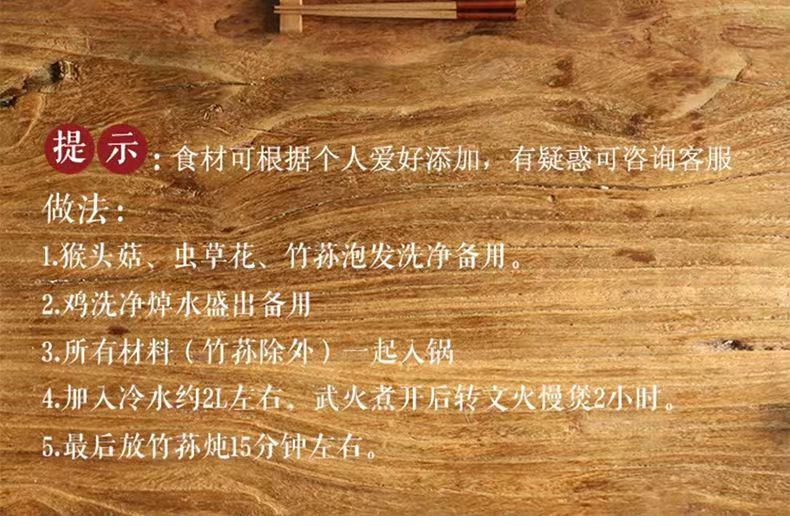 提示：食材可根据个人爱好添加，有疑惑可咨询客服
做法：
1.猴头菇、虫草花、竹荪泡发洗净备用。
2.鸡洗净焯水盛出备用
3.所有材料（竹荪除外）一起入锅
4.加入冷水约2L左右，武火煮开后转文火慢煲2小时。
5.最后放竹荪炖15分钟左右。